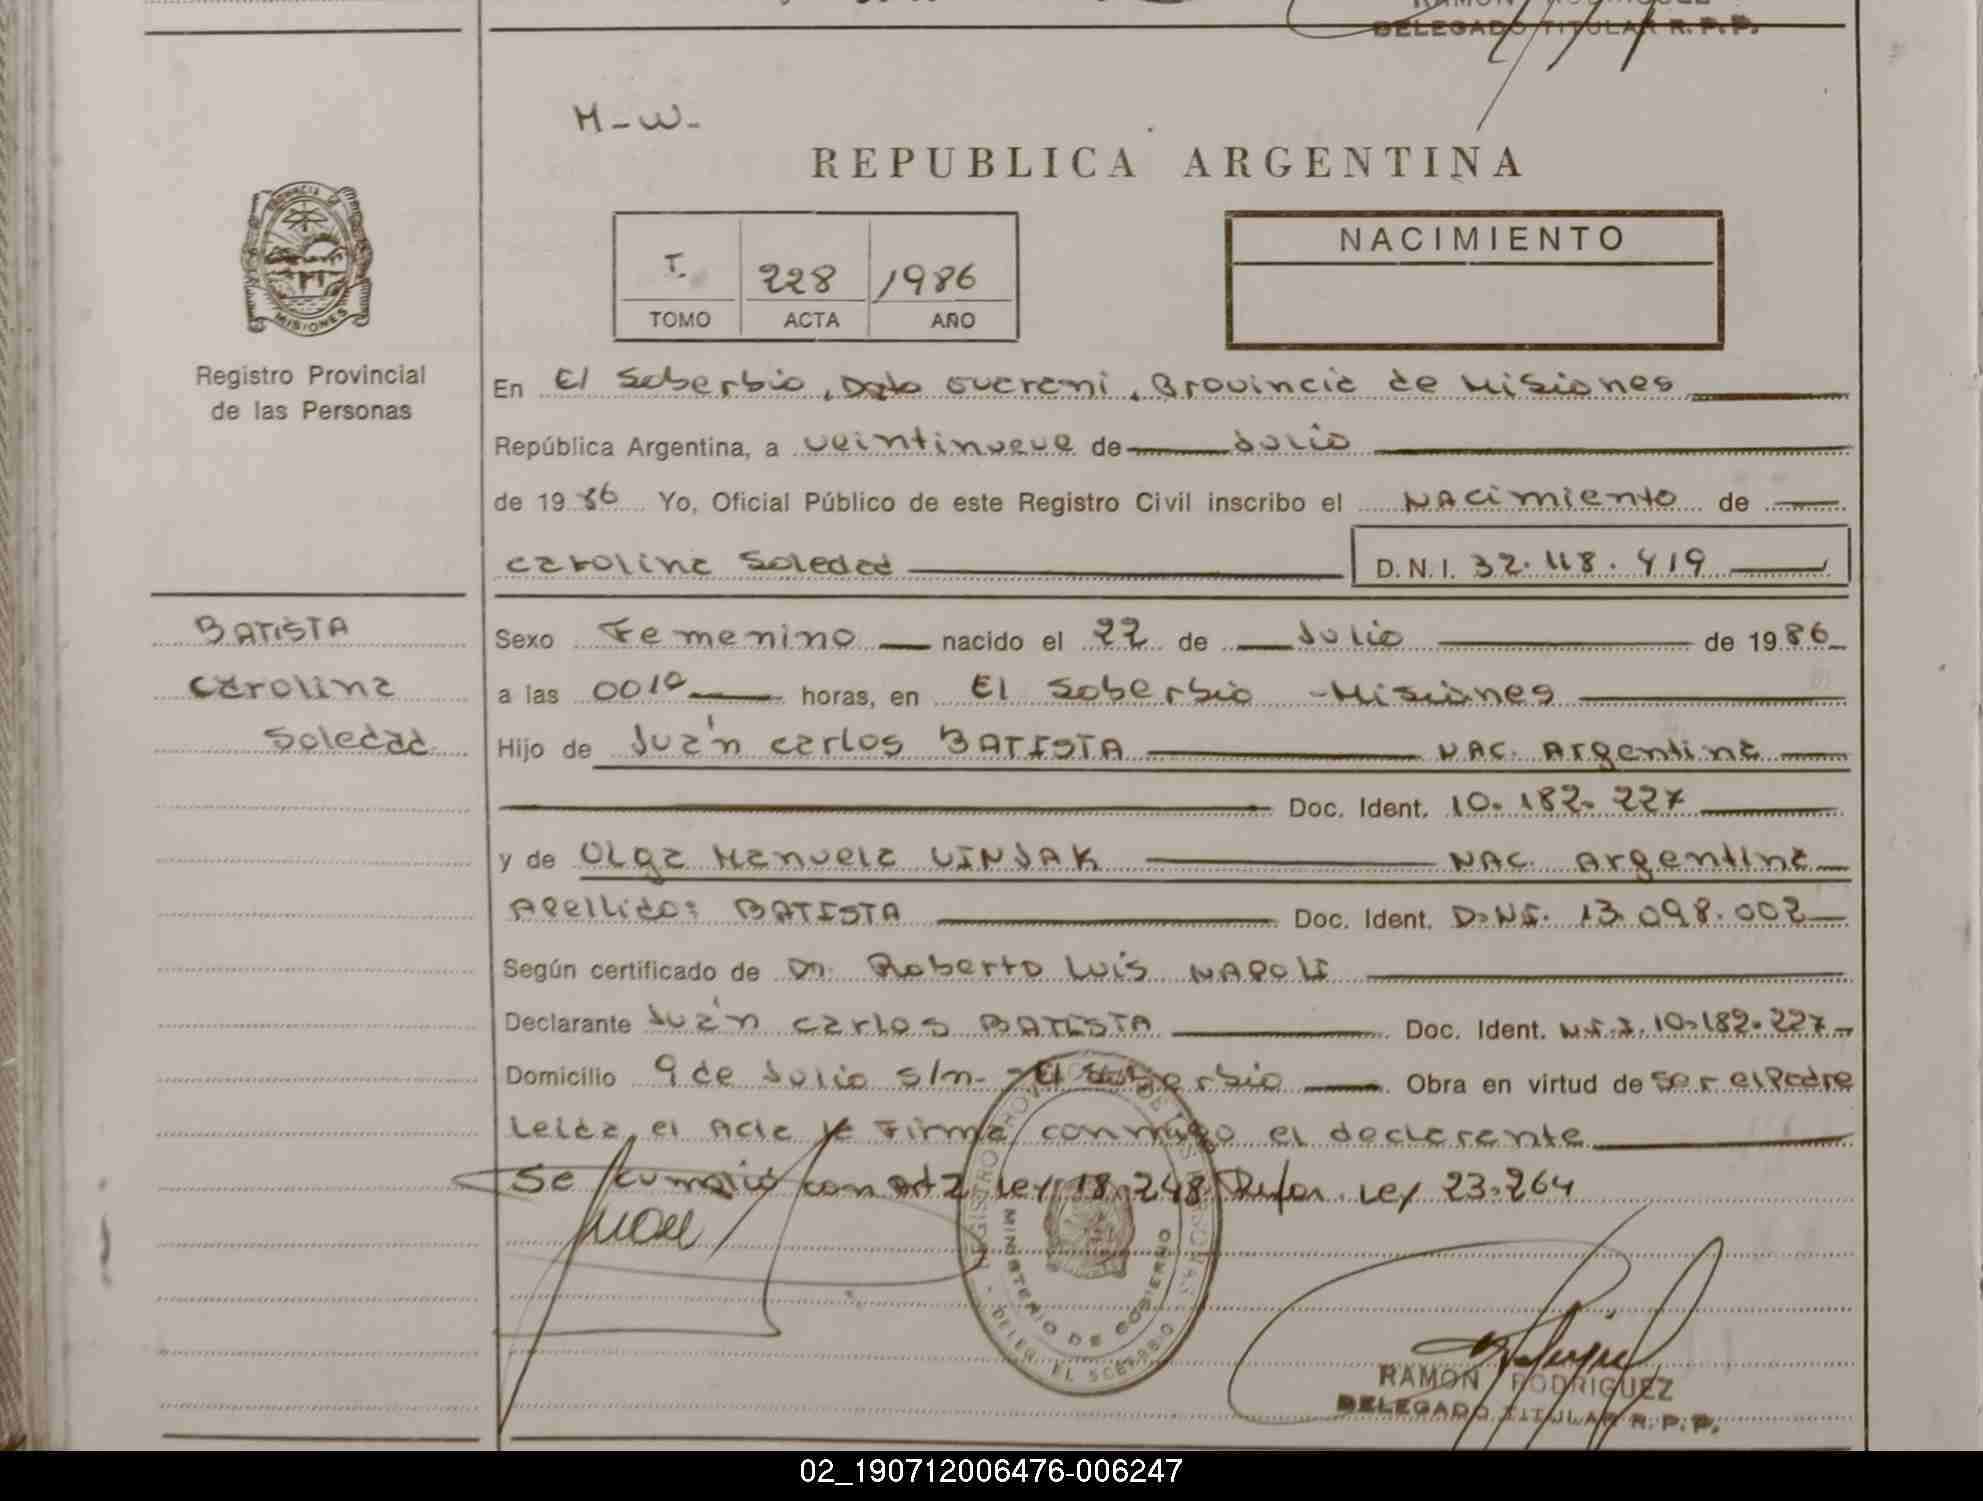 RAMON RODRIGUEZ
DELEGADO TITULAR R.P.P.
M-W-
REPUBLICA ARGENTINA
PROVINCIA DE
MISIONES
Registro Provincial
de las Personas
T. 228 1986
TOMO ACTA AÑO
NACIMIENTO
En El Soberbio, Dpto Guarani, Provincia de Misiones
República Argentina, a veintinueve de Julio
de 1986 Yo, Oficial Público de este Registro Civil inscribo el Nacimiento de
Carolina Soledad D.N.I. 32.118.419
BATISTA
Carolina
Soledad
Sexo Femenino nacido el 22 de Julio de 1986
a las 0010 horas, en El Soberbio - Misiones
Hijo de Juán Carlos BATISTA NAC. Argentina
Doc. Ident. 10.182.227
y de Olga Manuela VINJAK NAC. Argentina
Apellido: BATISTA Doc. Ident. D.N.I. 13.098.002
Según certificado de Dr. Roberto Luis NAPOLI
Declarante Juán Carlos BATISTA Doc. Ident. 10.182.227
Domicilio 9 de Julio s/n - El Soberbio Obra en virtud de ser el Padre
Leida el Acta la Firma conmigo el declarante
Se cumplió con Art 2 Ley 18.248 Refor. Ley 23.264
REGISTRO PROVINCIAL DE LAS PERSONAS
MINISTERIO DE GOBIERNO
DELEG. EL SOBERBIO
RAMON RODRIGUEZ
DELEGADO TITULAR R.P.P.
02_190712006476-006247